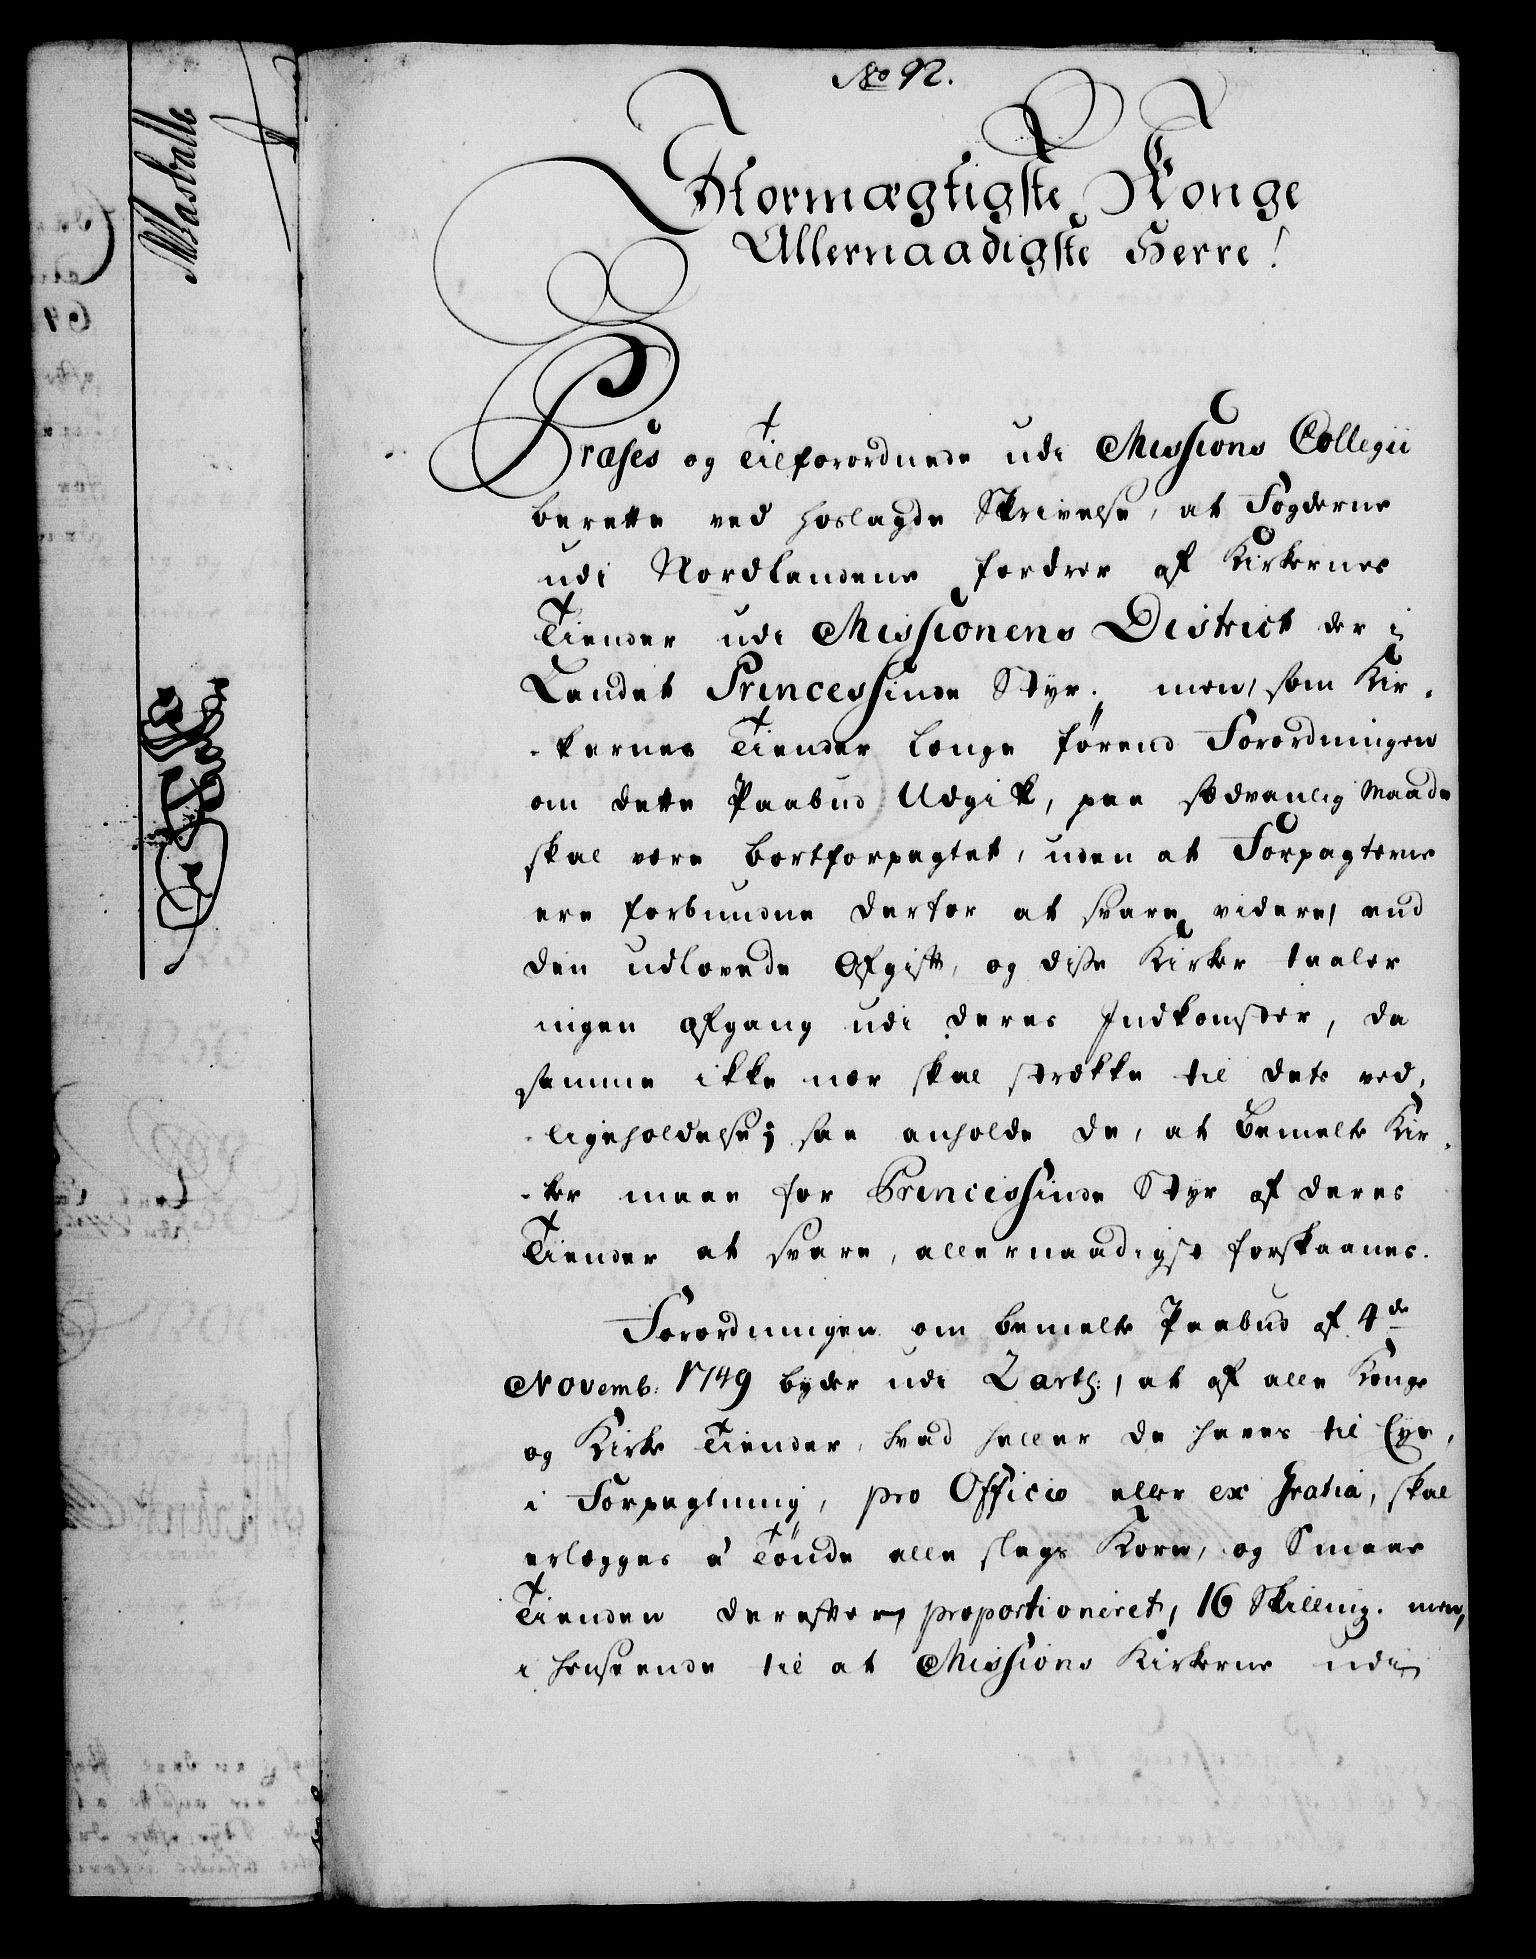 No 92.
Stormægtigste Konge
Allernaadigste Herre!
Præses og Tilforordnede udi Missions Collegii
berette ved hoslagde Skrivelse, at Fogderne
udi Nordlandene fordrer af Kirkernes
Tiender udi Missionens District der i
Landet Princessinde Styr; men, som Kir-
-kernes Tiender længe førend Forordningen
om dette Paabud Udgik, paa sædvanlig Maade
skal være bortforpagtet, uden at Forpagterne
ere forbundne derfor at svare videre, end
den udlovede Afgift, og disse Kirker taaler
ingen afgang udi deres Indkomster, da
samme ikke nær skal strække til dets ved-
-ligeholdelse; saa anholde de, at bemelte Kir-
-ker maae for Princessinde Styr af deres
Tiender at svare, allernaadigst forskaanes.
Forordningen om bemelte Paabud af 4de
Novemb: 1749 byder udi 2 art:, at af alle Konge
og Kirke Tiender, hvad heller de haves til Eye,
i Forpagtning, pro Officio eller ex Gratia, skal
erlægges á Tönde alle slags Korn, og Smaae
Tienden derefter proportioneret, 16 Skilling. men,
i henseende til at Missions Kirkerne udi